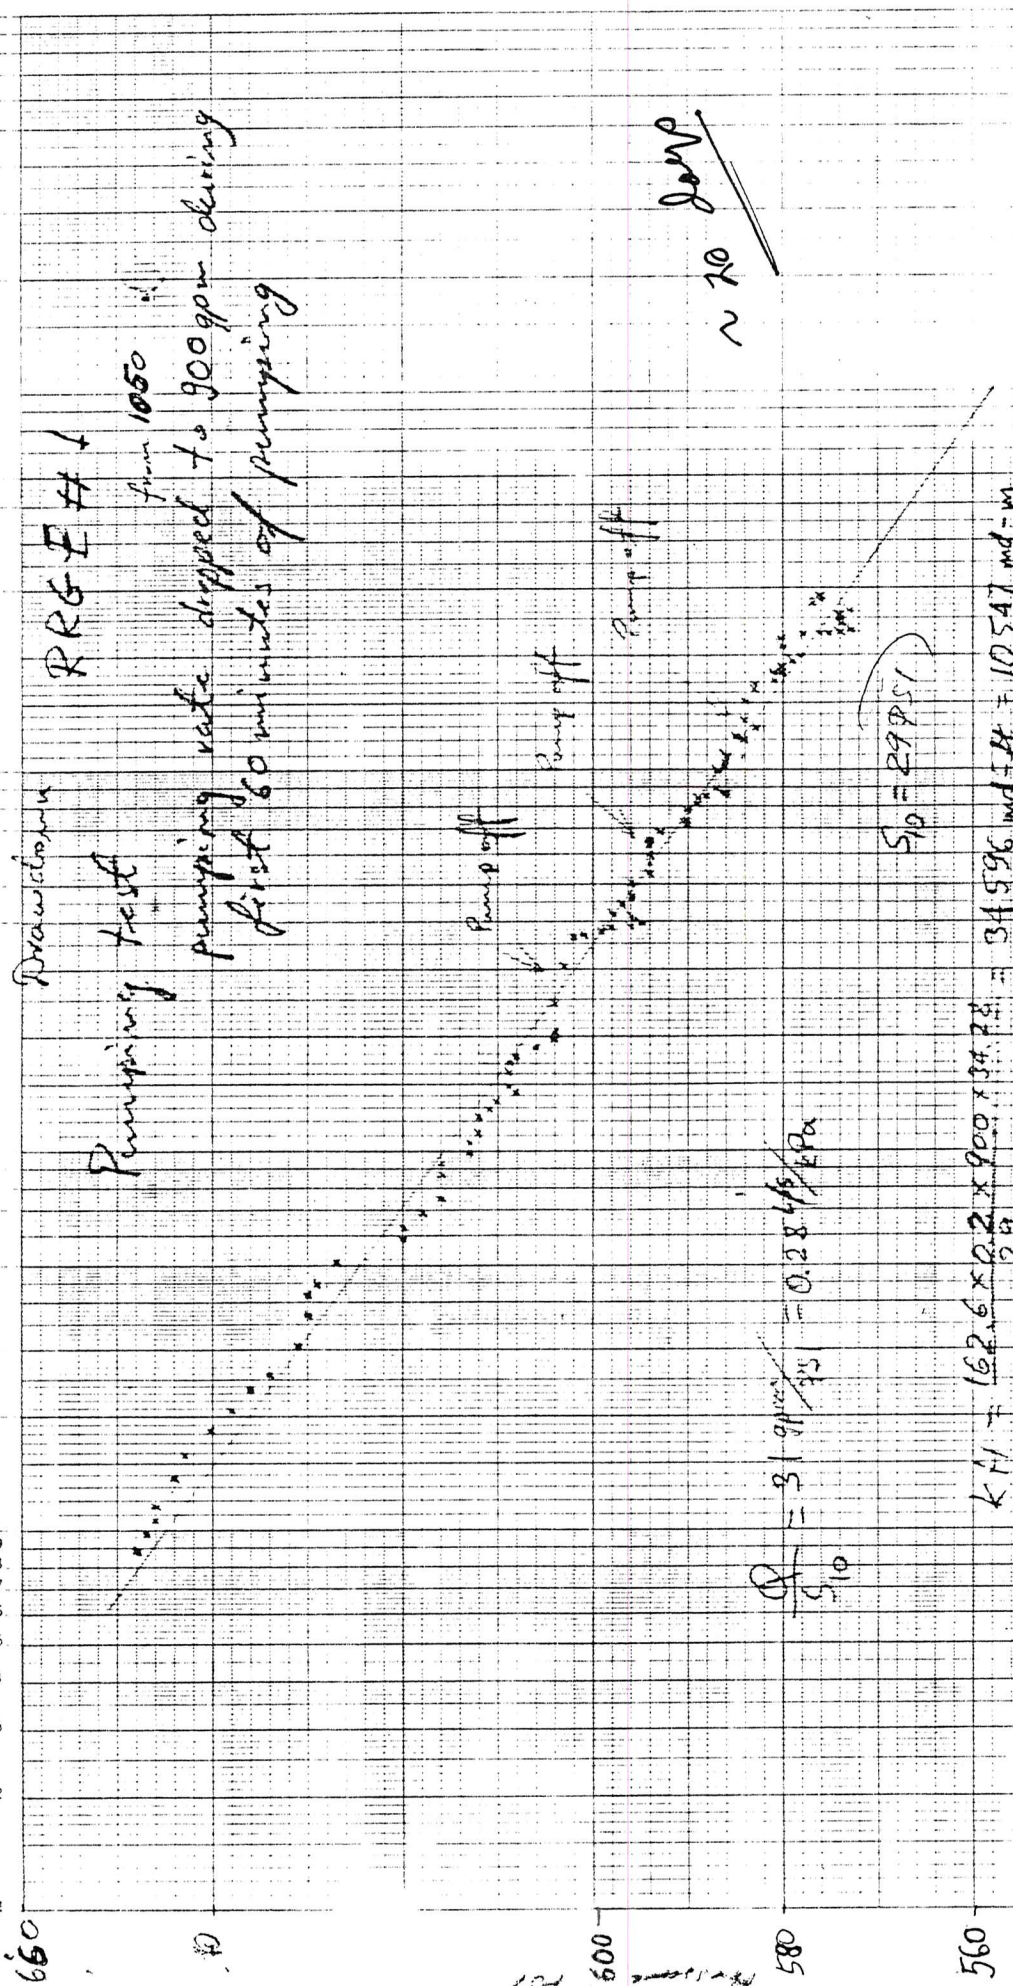 Drawdown
Pumping test RRGE #1
from 1050
pumping rate dropped to 900 gpm during
first 60 minutes of pumping
Pump off
Pump off
Pump off
~ 20 days
S10 = 29 PSI
Q/S10 = 31 gpm/PSI = 0.28 l/s/kPa
kH = 162.6 x 0.2 x 900 x 34.28 / 29 = 34596 md-ft = 10547 md-m
660
600
580
560
Pressure